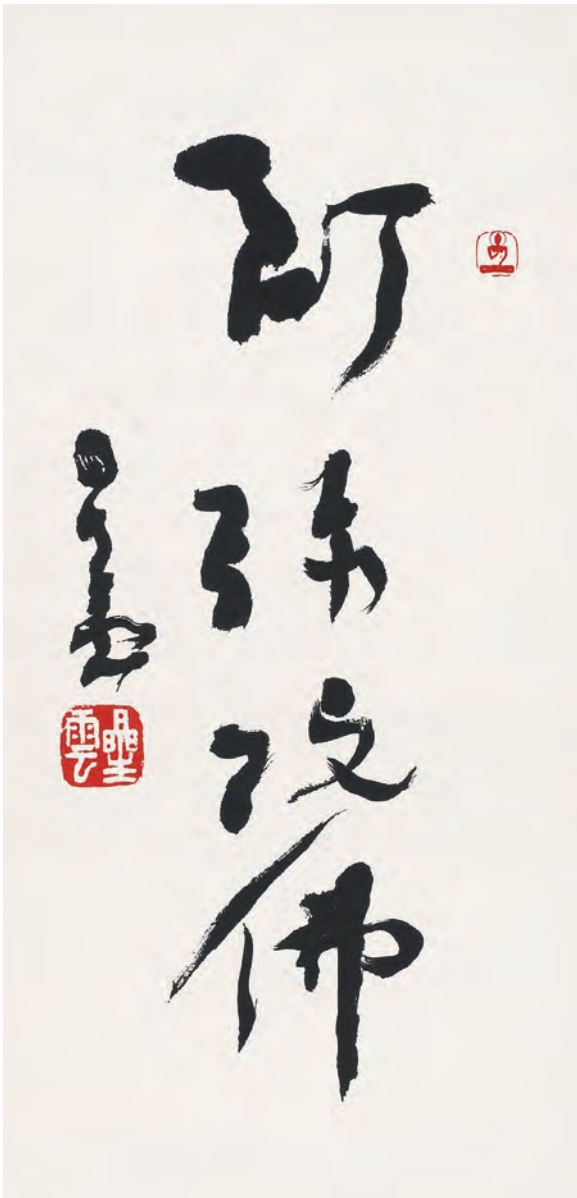 阿弥陀佛
星雲
星雲